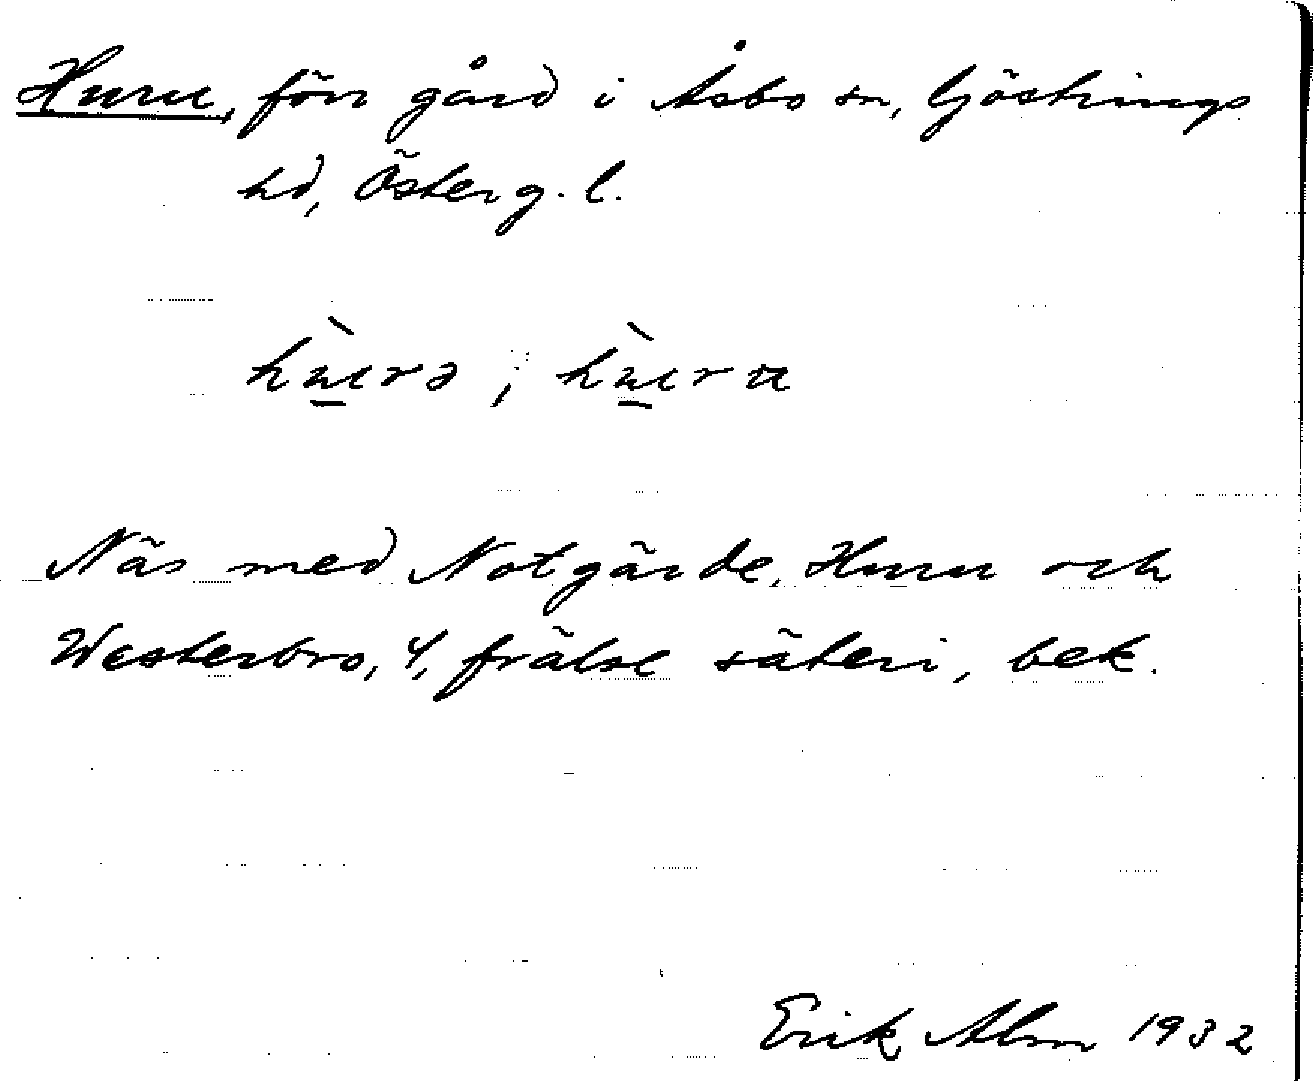 Huru, förr gård i Åsbo sn, Göstrings
hd, Österg. l.
hùrə; hùru
Näs med Notgärde, Huru och
Westerbro, 4, frälse säteri, bek.
Erik Alm 1932